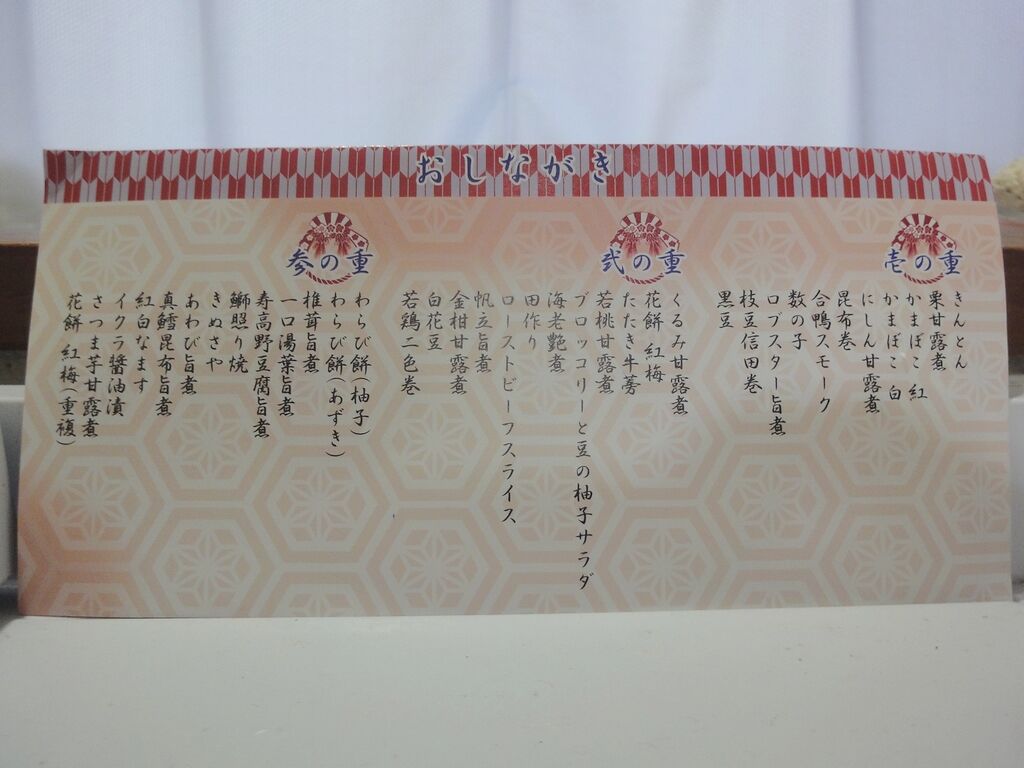 おしながき
壱の重
きんとん
栗甘露煮
かまぼこ 紅
かまぼこ 白
にしん甘露煮
昆布巻
合鴨スモーク
数の子
ロブスター旨煮
枝豆信田巻
黒豆
弐の重
くるみ甘露煮
花餅 紅梅
たたき牛蒡
若桃甘露煮
ブロッコリーと豆の柚子サラダ
海老艶煮
田作り
ローストビーフスライス
帆立旨煮
金柑甘露煮
白花豆
若鶏二色巻
参の重
わらび餅(柚子)
わらび餅(あずき)
椎茸旨煮
一口湯葉旨煮
寿高野豆腐旨煮
鰤照り焼
きぬさや
あわび旨煮
真鱈昆布旨煮
紅白なます
イクラ醤油漬
さつま芋甘露煮
花餅 紅梅(重複)